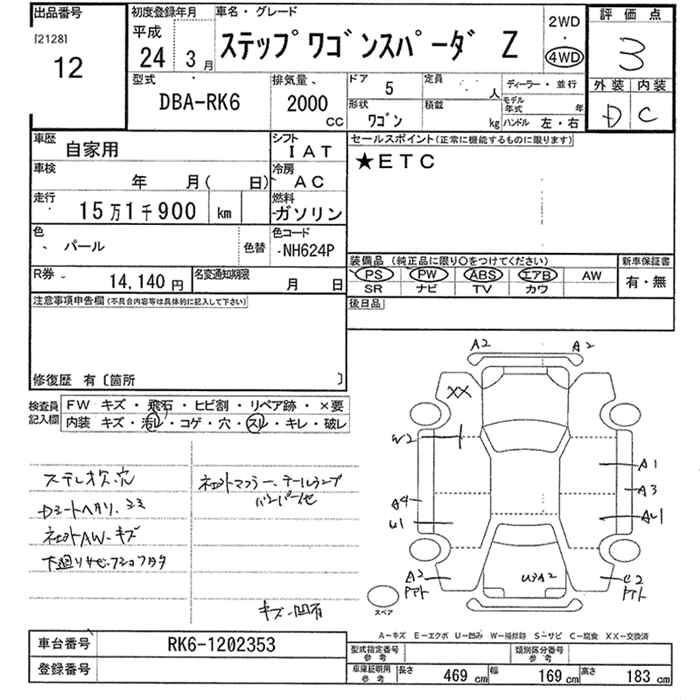 出品番号
[2128]
12
初度登録年月
平成
24 3月
車名・グレード
ステップワゴンスパーダ Z
2WD
・
4WD
評価点
3
外装 内装
D C
型式
DBA-RK6
排気量
2000
CC
ドア
5
形状
ワゴン
定員
人
積載
kg
ディーラー・並行
モデル年式
年
ハンドル 左・右
車歴
自家用
シフト
IAT
車検
年 月( 日)
冷房
AC
走行
15万1千900 km
燃料
ガソリン
色
パール
色替
色コード
NH624P
R券
14,140円
名変通知期限
月 日
セールスポイント(正常に機能するものに限ります)
★ETC
装備品 (純正品に限り○をつけてください)
PS PW ABS エアB AW
SR ナビ TV カワ
新車保証書
有・無
後日品
注意事項申告欄(不具合内容等は具体的に記入して下さい)
修復歴 有〔箇所 〕
検査員記入欄
FW キズ・飛石・ヒビ割・リペア跡・×要
内装 キズ・汚レ・コゲ・穴・スレ・キレ・破レ
ステレオ欠、穴
Dシートヘタリ、シミ
社外AW、キズ
下廻りサビ、
社外マフラー、テールランプ
キズ、凹有
A2 A2
XX
W2
A1
A3
A4
U1
AU1
A2
U3A2
C2
スペア
A－キズ E－エクボ U－凹み W－補修跡 S－サビ C－腐食 XX－交換済
車台番号
RK6-1202353
登録番号
型式指定番号
参考
類別区分番号
参考
車庫証明用
参考
長さ 469 cm 幅 169 cm 高さ 183 cm